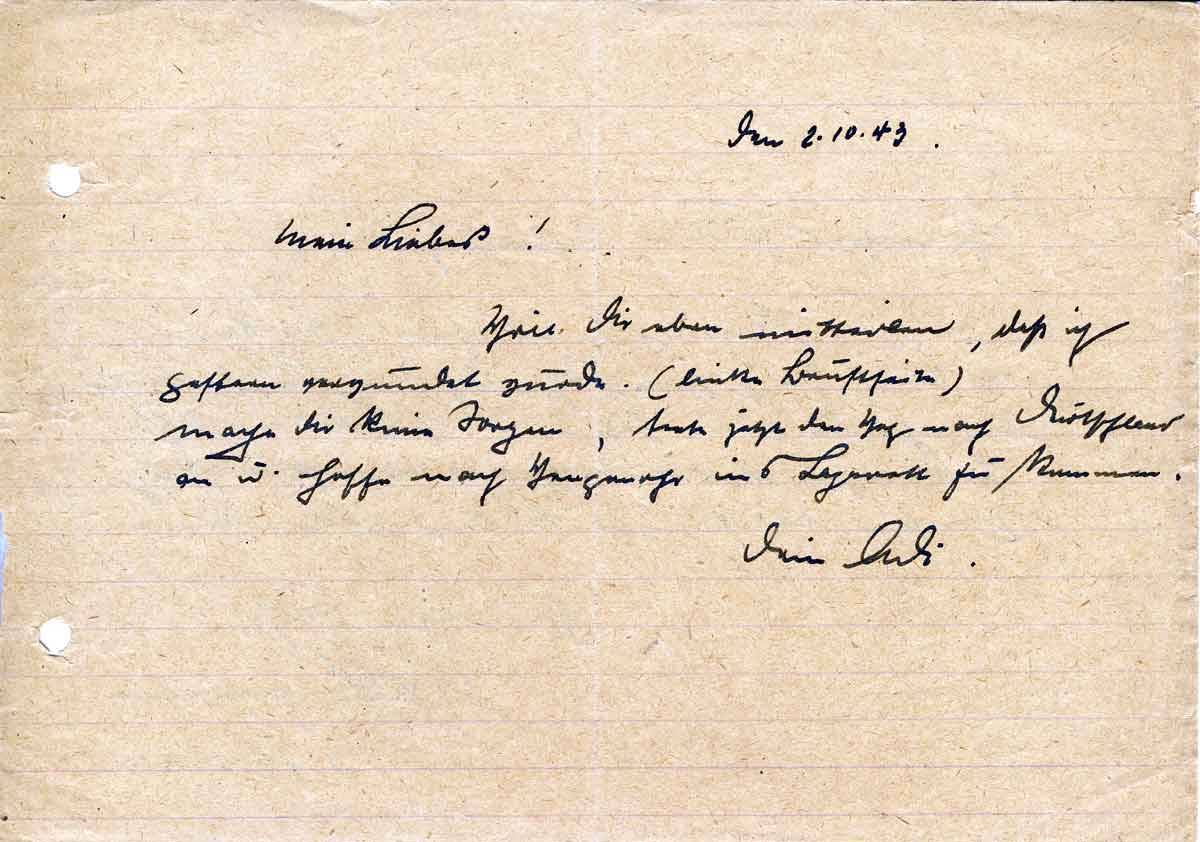 Den 2.10.43.
Mein Liebes!
Dir eben mitteilen, daß ich
gestern verwundet wurde. (linke Brustseite)
mache dir keine Sorgen, trete jetzt den Weg nach Deutschland
an u. hoffe nach ins Lazarett zu kommen.
Dein